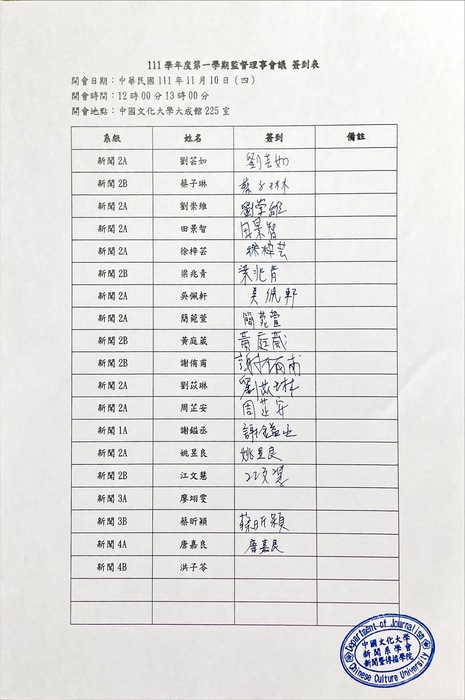 111 學年度第一學期監督理事會議 簽到表
開會日期：中華民國 111 年 11 月 10 日（四）
開會時間：12 時 00 分 13 時 00 分
開會地點：中國文化大學大成館 225 室
系級 姓名 簽到 備註
新聞 2A 劉芸如 劉芸如
新聞 2B 蔡子琳 蔡子琳
新聞 2A 劉崇維 劉崇維
新聞 2A 田景智 田景智
新聞 2A 徐梓芸 徐梓芸
新聞 2B 梁兆青 梁兆青
新聞 2A 吳佩軒 吳佩軒
新聞 2A 簡菀萱 簡菀萱
新聞 2B 黃庭葳 黃庭葳
新聞 2B 謝侑甫 謝侑甫
新聞 2A 劉苡琳 劉苡琳
新聞 2A 周芷安 周芷安
新聞 1A 謝鎰丞 謝鎰丞
新聞 2A 姚昱良 姚昱良
新聞 2B 江文慧 江文慧
新聞 3A 廖翊雯
新聞 3B 蔡昕穎 蔡昕穎
新聞 4A 唐嘉良 唐嘉良
新聞 4B 洪子苓
Department of Journalism
中國文化大學
新聞系學會
新聞暨傳播學院
Chinese Culture University